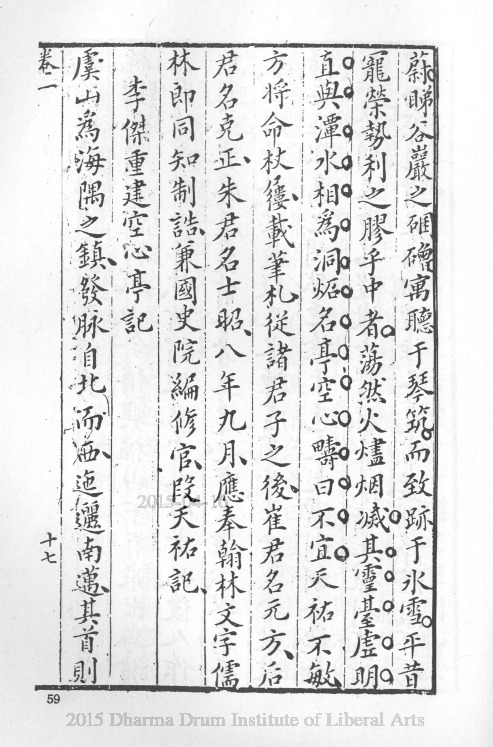 蔚睇谷巖之硱磳寓聽于琴筑而致跡于氷雪平昔
寵榮勢利之膠乎中者蕩然火爐烟滅其靈臺虛明
直與潭水相爲洞炤名亭空心疇曰不宜天祐不敏
方將命杖屨載筆札從諸君子之後崔君名元方后
君名克正朱君名士昭八年九月應奉翰林文字儒
林郎同知制誥兼國史院編修官段天祐記
李傑重建空心亭記
虞山為海隅之鎮發脉自北而西迤邐南邁其首則
卷一
十七
59
2015-04-10
2015 Dharma Drum Institute of Liberal Arts